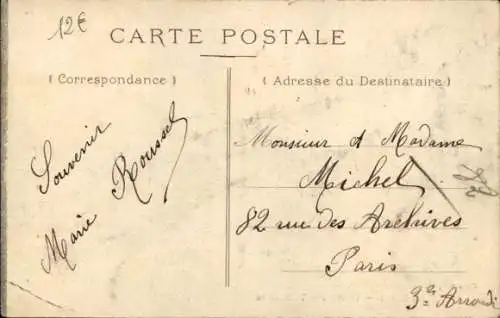 12€
CARTE POSTALE
( Correspondance )
( Adresse du Destinataire )
Souvenir
Marie Roussel
Monsieur et Madame
Michel
82 rue des Archives
Paris
3e Arrondi